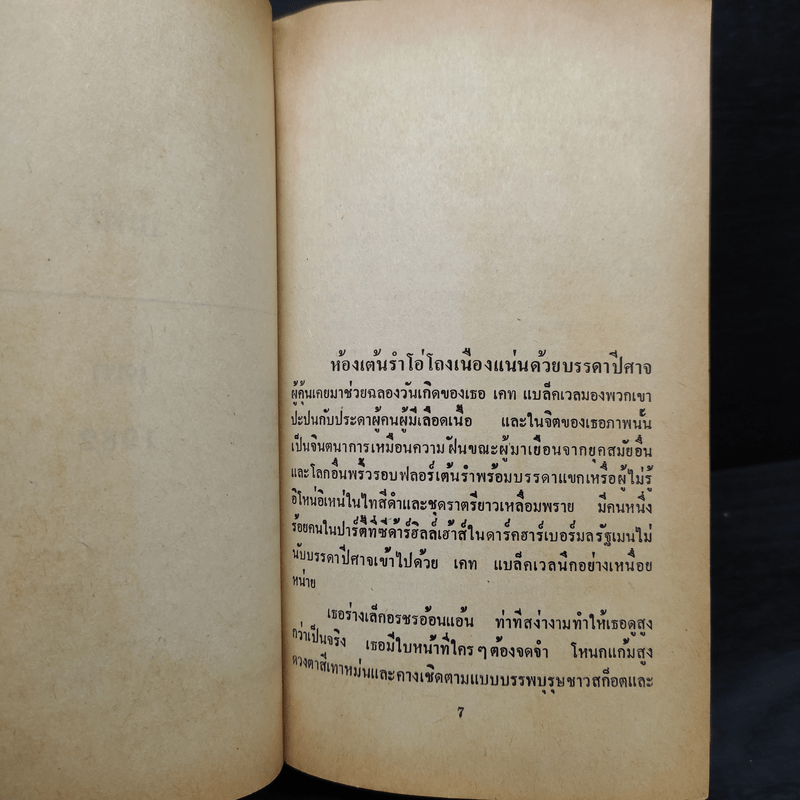 ห้องเต้นรำโอ่โถงเนืองแน่นด้วยบรรดาปีศาจ
ผู้คุ้นเคยมาช่วยฉลองวันเกิดของเธอ เคท แบล็คเวลมองพวกเขา
ปะปนกับประดาผู้คนผู้มีเลือดเนื้อ และในจิตของเธอภาพนั้น
เป็นจินตนาการเหมือนความฝันขณะผู้มาเยือนจากยุคสมัยอื่น
และโลกอื่นพริ้วรอบฟลอร์เต้นรำพร้อมบรรดาแขกเหรื่อผู้ไม่รู้
อิโหน่อิเหน่ในไทสีดำและชุดราตรียาวเหลื่อมพราย มีคนหนึ่ง
ร้อยคนในปาร์ตี้ที่ซีด้าร์ฮิลล์เฮ้าส์ในดาร์คฮาร์เบอร์มลรัฐเมนไม่
นับบรรดาปีศาจเข้าไปด้วย เคท แบล็คเวลนึกอย่างเหนื่อย
หน่าย
เธอร่างเล็กอรชรอ้อนแอ้น ท่าทีสง่างามทำให้เธอดูสูง
กว่าเป็นจริง เธอมีใบหน้าที่ใครๆต้องจดจำ โหนกแก้มสูง
ดวงตาสีเทาหม่นและคางเชิดตามแบบบรรพบุรุษชาวสก็อตและ
7